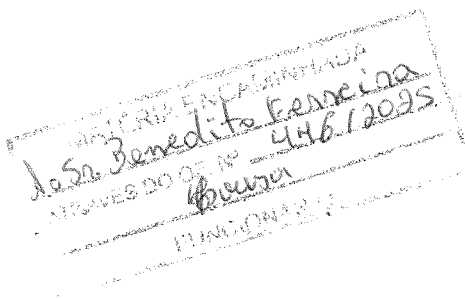 MATÉRIA ENCAMINHADA
Ao Sr. Benedito Ferreira
ATRAVES DO OF. Nº 446/2025
FUNCIONÁRIO